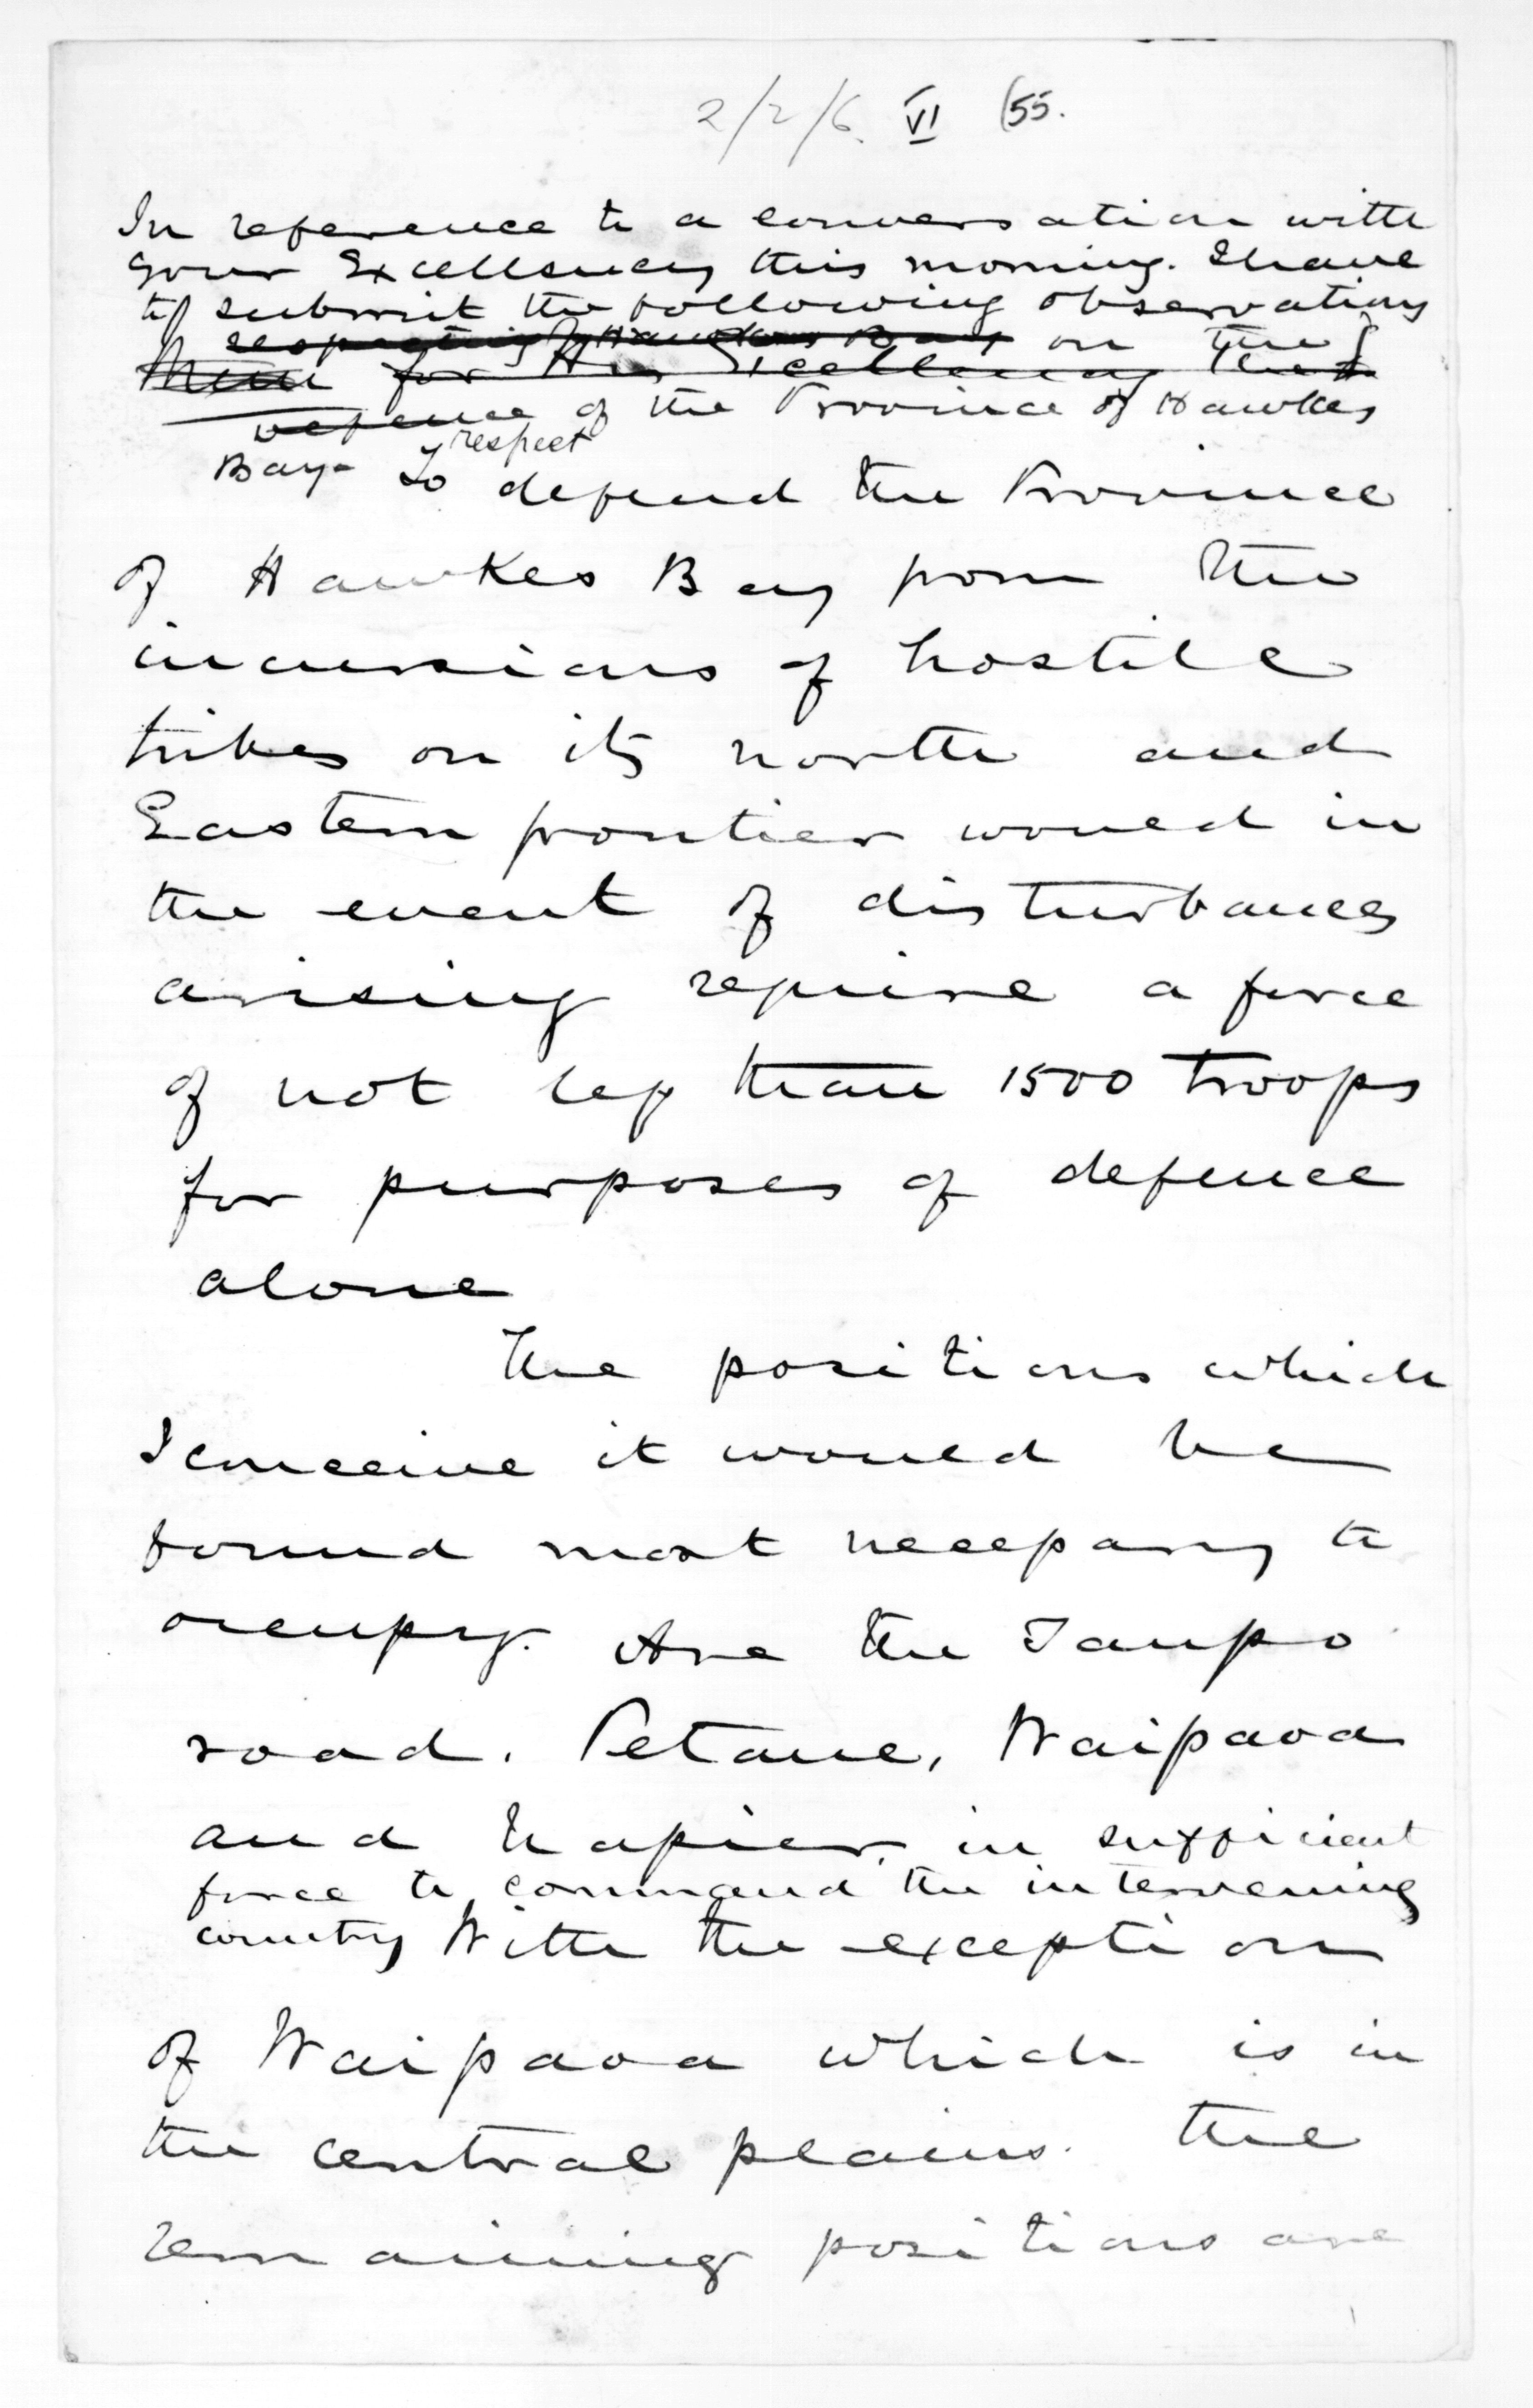 2/2/6. VI (55.
In reference to a conversation with
your Excellency this morning. I have
to submit the following observations
respecting Hawkes Bay on the
Mem for His Excellency the
defence of the Province of Hawkes
respect
Bay - To defend the Province
of Hawkes Bay from the
incursions of hostile
tribes on its north and
Eastern frontier would in
the event of disturbances
arising require a force
of not less than 1500 troops
for purposes of defence
alone
The positions which
I conceive it would be
found most necessary to
occupy. Are the Taupo
road. Petane, Waipaoa
and Napier, in sufficient
force to command the intervening
country With the exception
of Waipaoa which is in
the central plains. the
remaining positions are